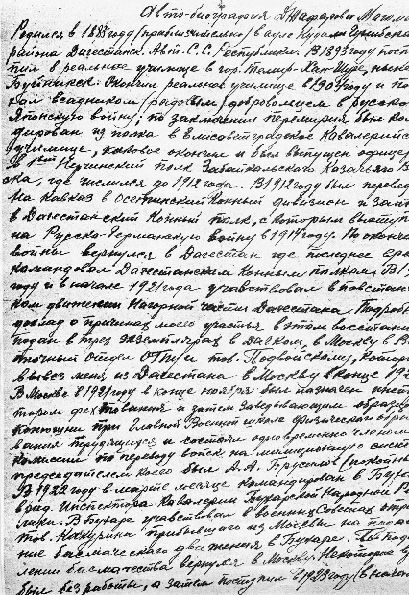 Авто-биография Джафарова Магома
Родился в 1883 году (приблизительно) в ауле Кудали Гунибского
района Дагестанск. Авт. С. С. Республики. В 1893 году посту
пил в реальное училище в гор. Темир-Хан-Шуре, ныне
Буйнакск. Окончил реальное училище в 1904 году и по
ехал всадником (рядовым) добровольцем в русско
Японскую войну, по заключении перемирия был ко
дирован из полка в Елисаветградское Кавалерийс
училище, каковое окончил и был выпущен офице
в 1ый Нерчинский полк Забайкальского Казачьего В
ка, где числился до 1912 года. В 1912 году был переве
на Кавказ в Осетинский Конный дивизион и зат
в Дагестанский Конный полк, с которым выступ
на Русско-Германскую войну в 1914 году. По оконча
войны вернулся в Дагестан где последнее вре
командовал Дагестанским Конным полком. В
году и в начале 1921 года участвовал в повстан
ком движении Нагорной части Дагестана. Подроб
доклад о причинах моего участья в этом восстани
подан в трех экземплярах в Дагком, в Москву в В
точный Отдел ОГПУ и тов. Подвойскому, котор
вывез меня из Дагестана в Москву в конце 192
В Москве в 1921 году в конце ноября был назначен инст
тором фехтования и затем Заведывающим образц
конюшни при Главной Военной школе физического образо
вания трудящихся и состоял одновременно членом
комиссии по переводу войск на милиционную систе
председателем коего был А. А. Брусилов (покойн
В 1922 году в марте месяце командирован в Буха
в рас. Инспектора Кавалерии Бухарской Народной Р
лики. В Бухаре участвовал в военных советах отр
тов. Какурина прибывшего из Москвы на подав
ние басмаческого движения в Бухаре. По подав
лении басмачества вернулся в Москву. Некоторое в
был без работы, а затем поступил в 1923 году (в нача